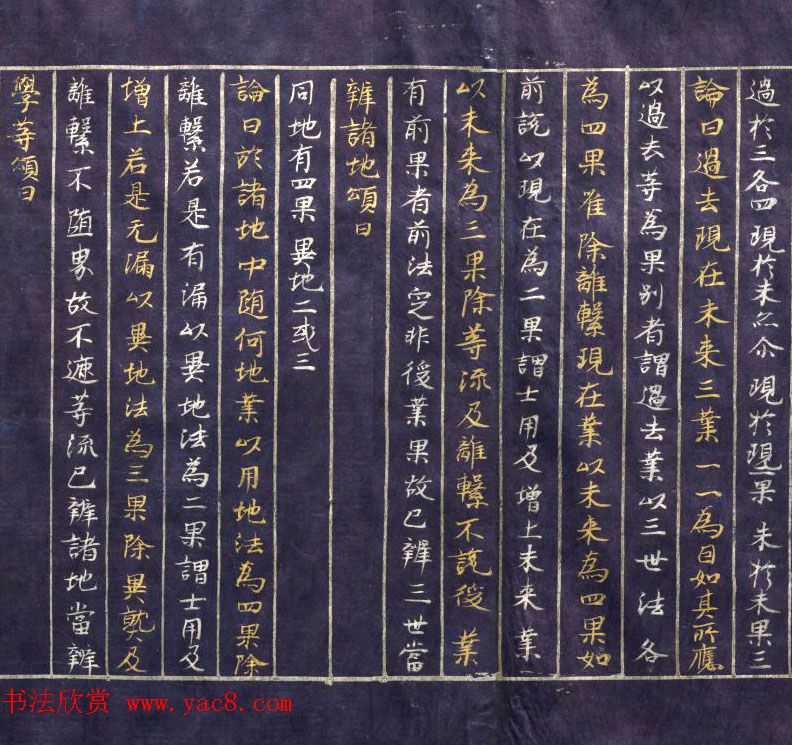 過於三各四 現於未尒 現於現果 未於未果三
論曰過去現在未来三業一一為因如其所應
以過去等為果別者謂過去業以三世法各
為四果唯除離繫現在業以未来為四果如
前說以現在為二果謂士用及增上未来業
以未来為三果除等流及離繫不說後業
有前果者前法定非後業果故已辯三世當
辯諸地頌曰
同地有四果 異地二或三
論曰於諸地中随何地業以同地法為四果除
離繫若是有漏以異地法為二果謂士用及
增上若是无漏以異地法為三果除異熟及
離繫不随界故不遮等流已辯諸地當辯
學等頌曰
书法欣赏 www.yac8.com